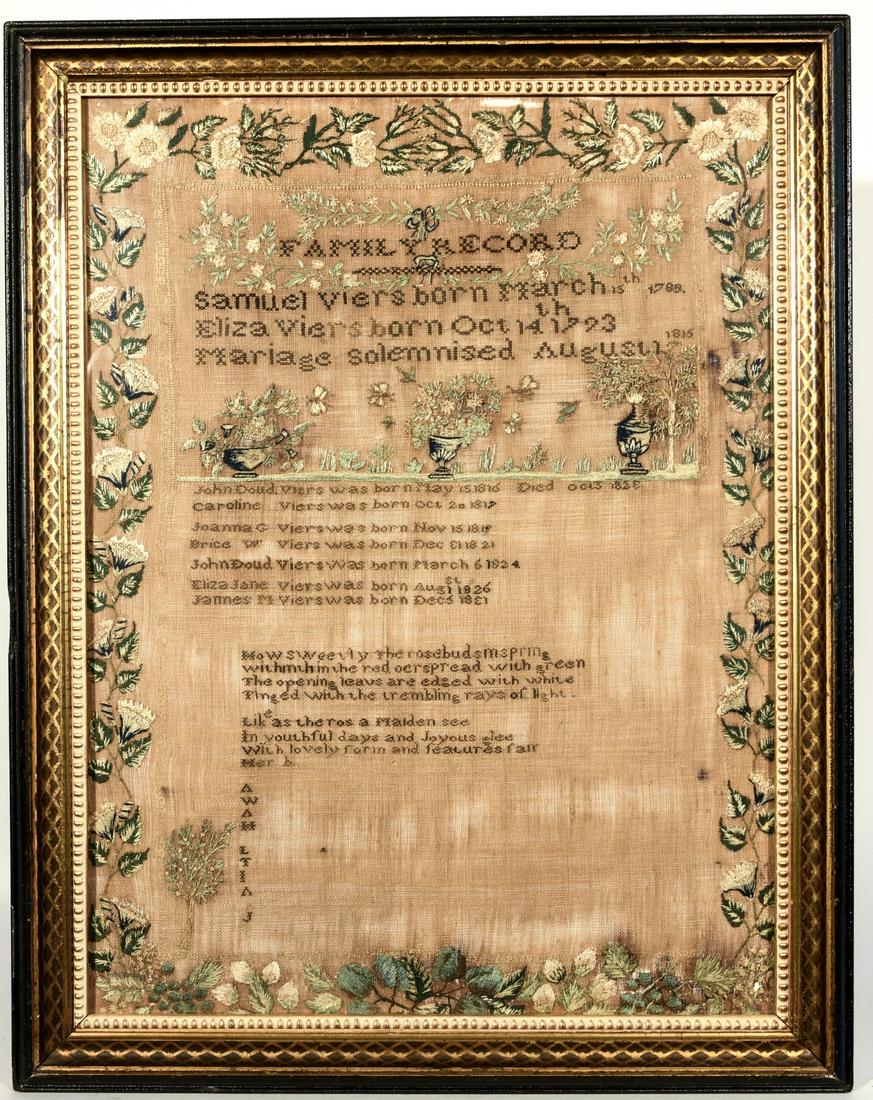 FAMILY RECORD
Samuel Viers born March 15th 1788.
Eliza Viers born Oct 14th 1793
Mariage Solemnised August 1 1815
John Doud Viers was born May 15 1816 Died Oct 3
Caroline Viers was born Oct 20 1817
Joanna C Viers was born Nov 15 1819
Brice W Viers was born Dec 31 1821
John Doud Viers Was born March 6 1824
Eliza Jane Viers was born Aug 1st 1826
James M Viers was born Dec 5
How Sweetly the rosebuds in spring
within the red oerspread with green
The opening leavs are edged with white
Tinged with the trembling rays of light.
Like as the ros a Maiden see
In youthful days and Joyous glee
With lovely form and features fair
Her b
A
W
A
H
L
T
I
A
J